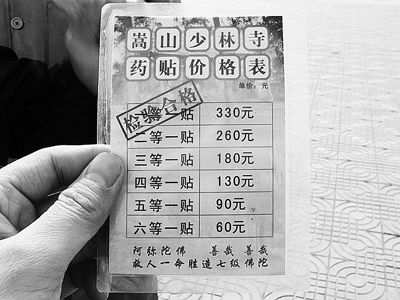 嵩山少林寺
药贴价格表
单价：元
检验合格
一等一贴 330元
二等一贴 260元
三等一贴 180元
四等一贴 130元
五等一贴 90元
六等一贴 60元
阿弥陀佛 善哉 善哉
救人一命胜造七级佛陀